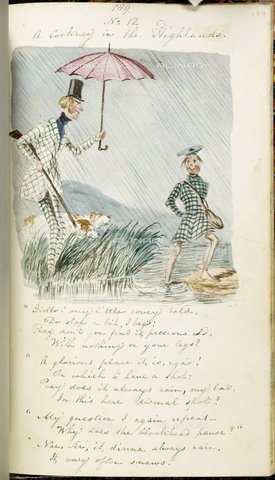 159
169
No 12.
A Cockney in the Highlands.
"Hollo! my little coney bold,
Do stop a bit, I beg;
Pray don't you find it precious cold,
With nothing on your legs?
"A glorious place it is, egad!
On which to have a shot:
Pray does it always rain, my lad,
In this here dismal spot?
"My question I again repeat—
Why does the blockhead pause?"
"Nae, Sir, it dinna always rain,
It vary often snaws.